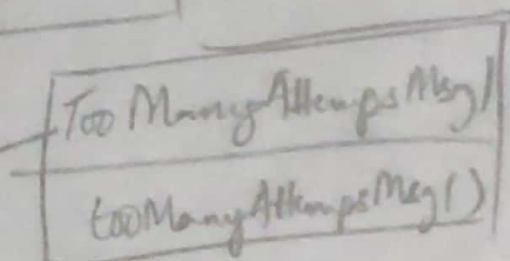 TooManyAttempsMsg
tooManyAttempsMsg()